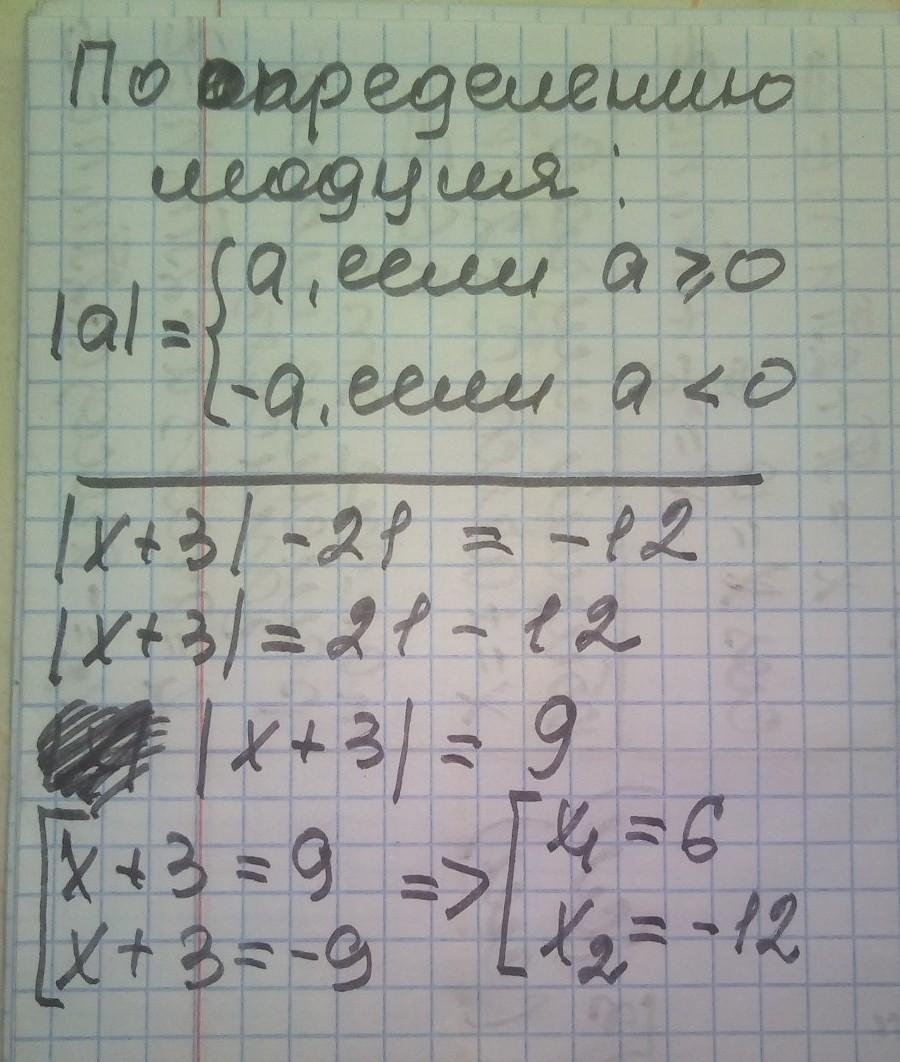 По определению
модуля:
|a| = { a, если a ⩾ 0
-a, если a < 0
|x+3| - 21 = -12
|x+3| = 21 - 12
|x+3| = 9
[ x+3 = 9 => [ x₁ = 6
x+3 = -9 x₂ = -12